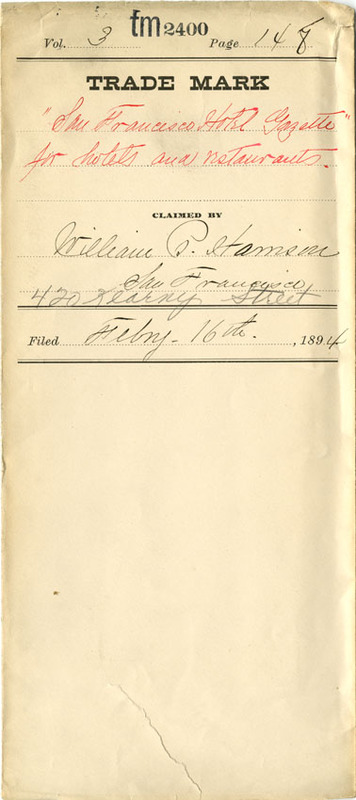 tm 2400
Vol. 3 Page 148
TRADE MARK
"San Francisco Hotel Gazette"
for hotels and restaurants.
CLAIMED BY
William P. Harrison
San Francisco
420 Kearny Street
Filed Feby. 16th. , 1894